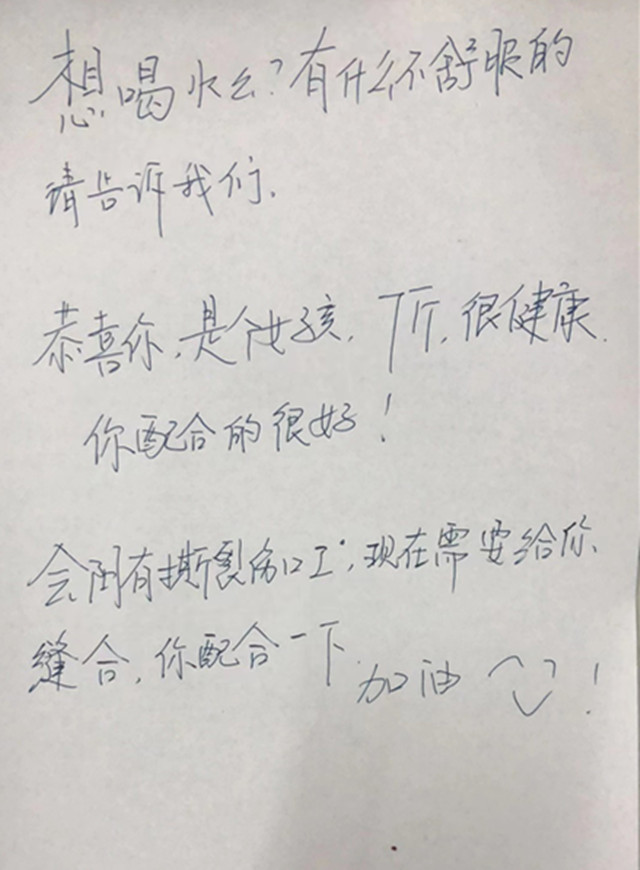 想喝水么?有什么不舒服的
请告诉我们.
恭喜你,是个女孩,7斤,很健康.
你配合的很好!
会阴有撕裂伤口I°,现在需要给你
缝合,你配合一下.
加油!